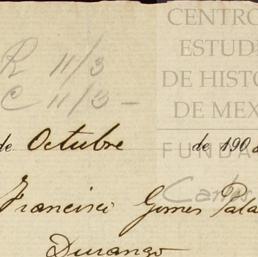 CENTRO
ESTUDI
DE HISTO
DE MEX
FUNDA
Carlos
R 11/3
C 11/3 -
de Octubre de 190
Francisco Gomes Pala
Durango